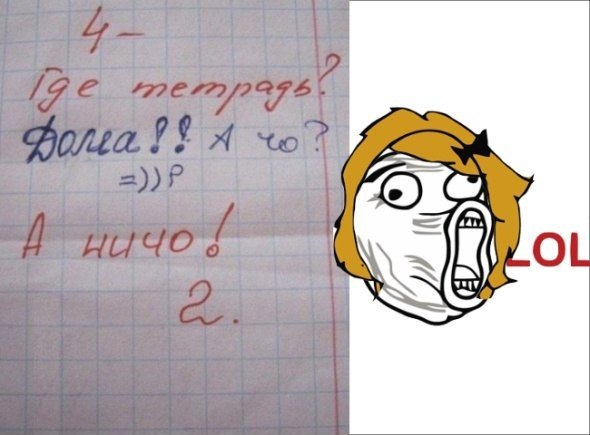 4-
Где тетрадь?
Дома!! А чо?
=))?
А ничо!
2.
LOL